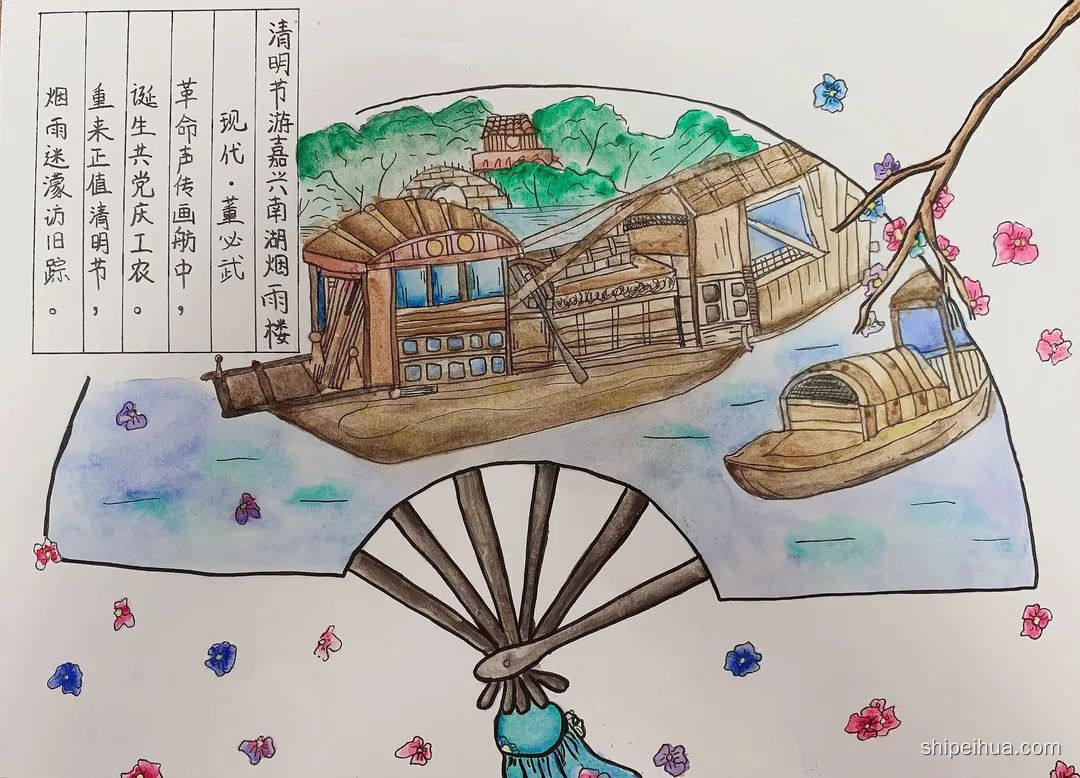 清明节游嘉兴南湖烟雨楼
现代·董必武
革命声传画舫中，
诞生共党庆工农。
重来正值清明节，
烟雨迷濛访旧踪。
shipeihua.com